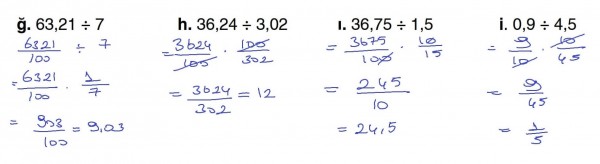 ğ. 63,21 ÷ 7
6321/100 ÷ 7
= 6321/100 · 1/7
= 903/100 = 9,03
h. 36,24 ÷ 3,02
= 3624/100 · 100/302
= 3624/302 = 12
ı. 36,75 ÷ 1,5
= 3675/100 · 10/15
= 245/10
= 24,5
i. 0,9 ÷ 4,5
= 9/10 · 10/45
= 9/45
= 1/5